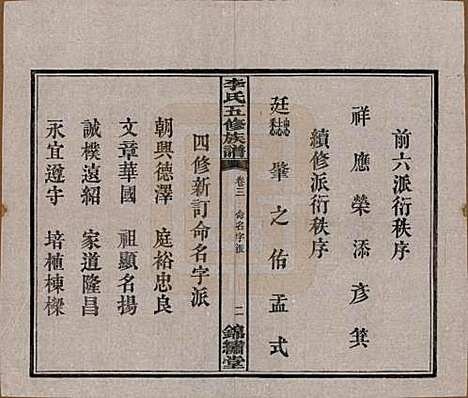 前六派衍秩序
祥應榮添彥箕
續修派衍秩序
廷肇之佑孟式
李氏五修族譜
卷三 命名字派 二
錦繡堂
四修新訂命名字派
朝興德澤 庭裕忠良
文章華國 祖顯名揚
誠樸遠紹 家道隆昌
永宜遵守 培植棟樑